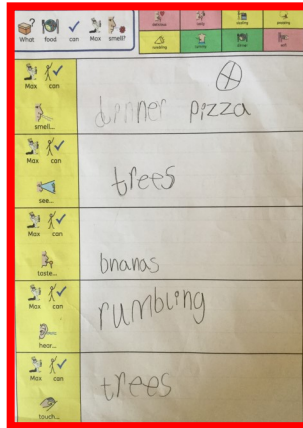 What food can Max smell?
rumbling
Max can
smell...
dinner pizza
Max can
see...
trees
Max can
taste...
bnanas
Max can
hear...
rumbling
Max can
touch...
trees